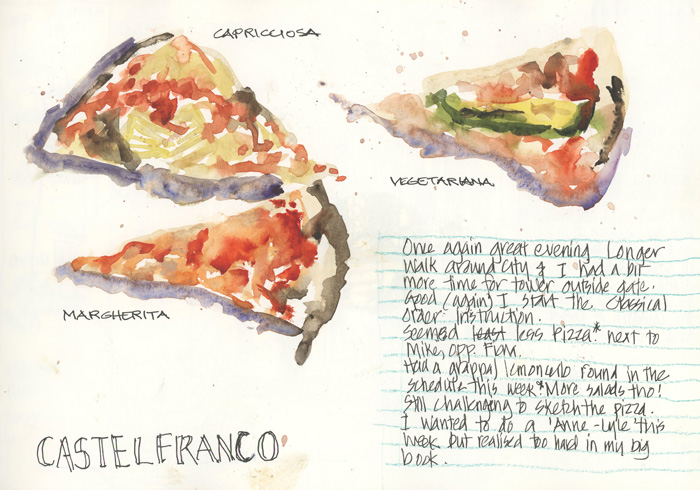 CAPRICCIOSA
VEGETARIANA
MARGHERITA
Once again great evening Longer
walk around city & I had a bit
more time for tower outside gate.
Good (again) I start the classical
order instruction.
Seemed least less pizza* next to
Mike, opp. Flim.
Had a grappa/lemoncello found in the
schedule this week* More salads tho!
Still challenging to sketch the pizza.
I wanted to do a 'Anne-Lyle' this
week but realised too hard in my big
book.
CASTELFRANCO